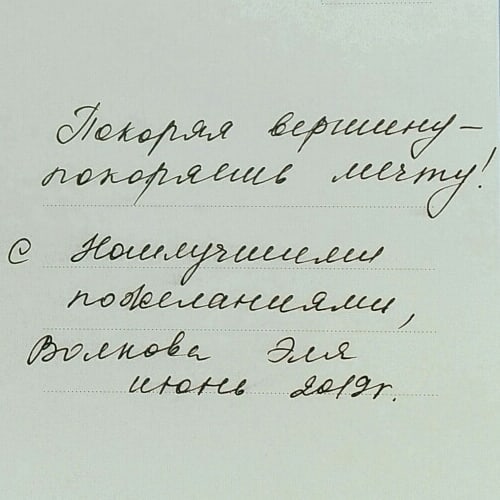 Покоряя вершину –
покоряешь мечту!
С Наилучшими
пожеланиями,
Волкова Эля
июнь 2019г.